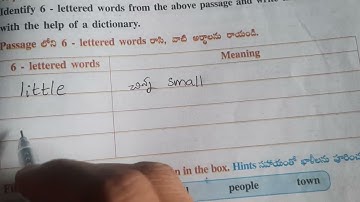 Identify 6 - lettered words from the above passage and write
with the help of a dictionary.
Passage లోని 6 - lettered words రాసి, వాటి అర్థాలను రాయండి.
6 - lettered words Meaning
little చిన్న small
in the box. Hints సహాయంతో ఖాళీలను
people town